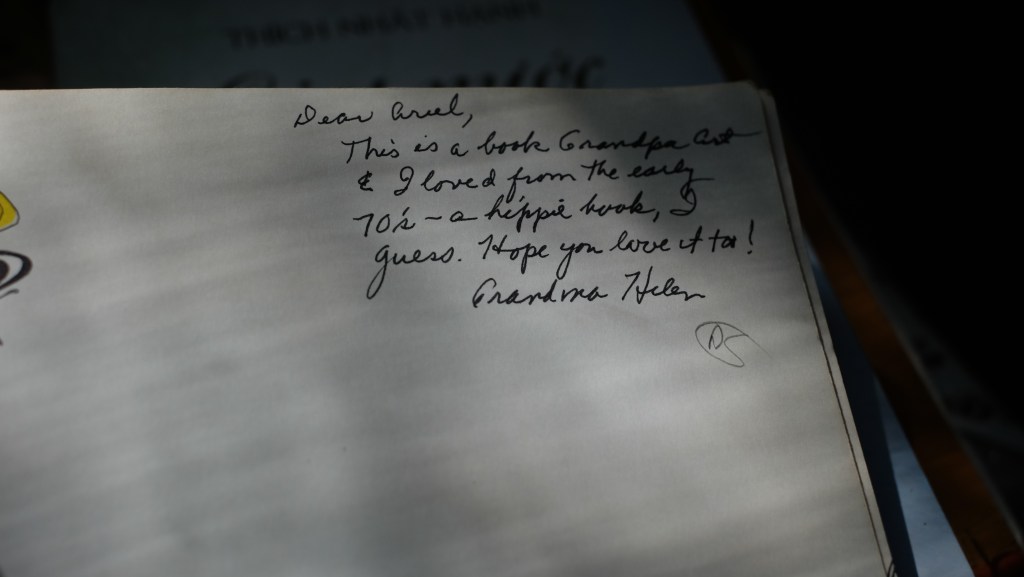 THÍCH NHẤT HẠNH
Dear Ariel,
This is a book Grandpa Art
& I loved from the early
70's - a hippie book, I
guess. Hope you love it too!
Grandma Helen